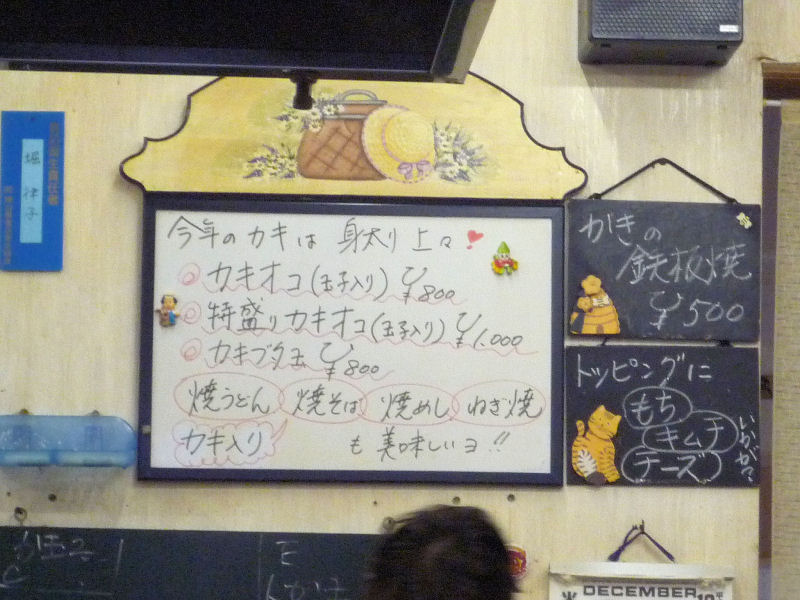 今年のカキは 身太り 上々
カキオコ(玉子入り) ¥800
特盛りカキオコ(玉子入り) ¥1.000
カキブタ玉 ¥800
焼うどん 焼そば 焼めし ねぎ焼
カキ入り も 美味しいヨ!!
かきの
鉄板焼
¥500
トッピングに
もち
キムチ
チーズ
いかが?
食品衛生責任者
堀 律子
DECEMBER